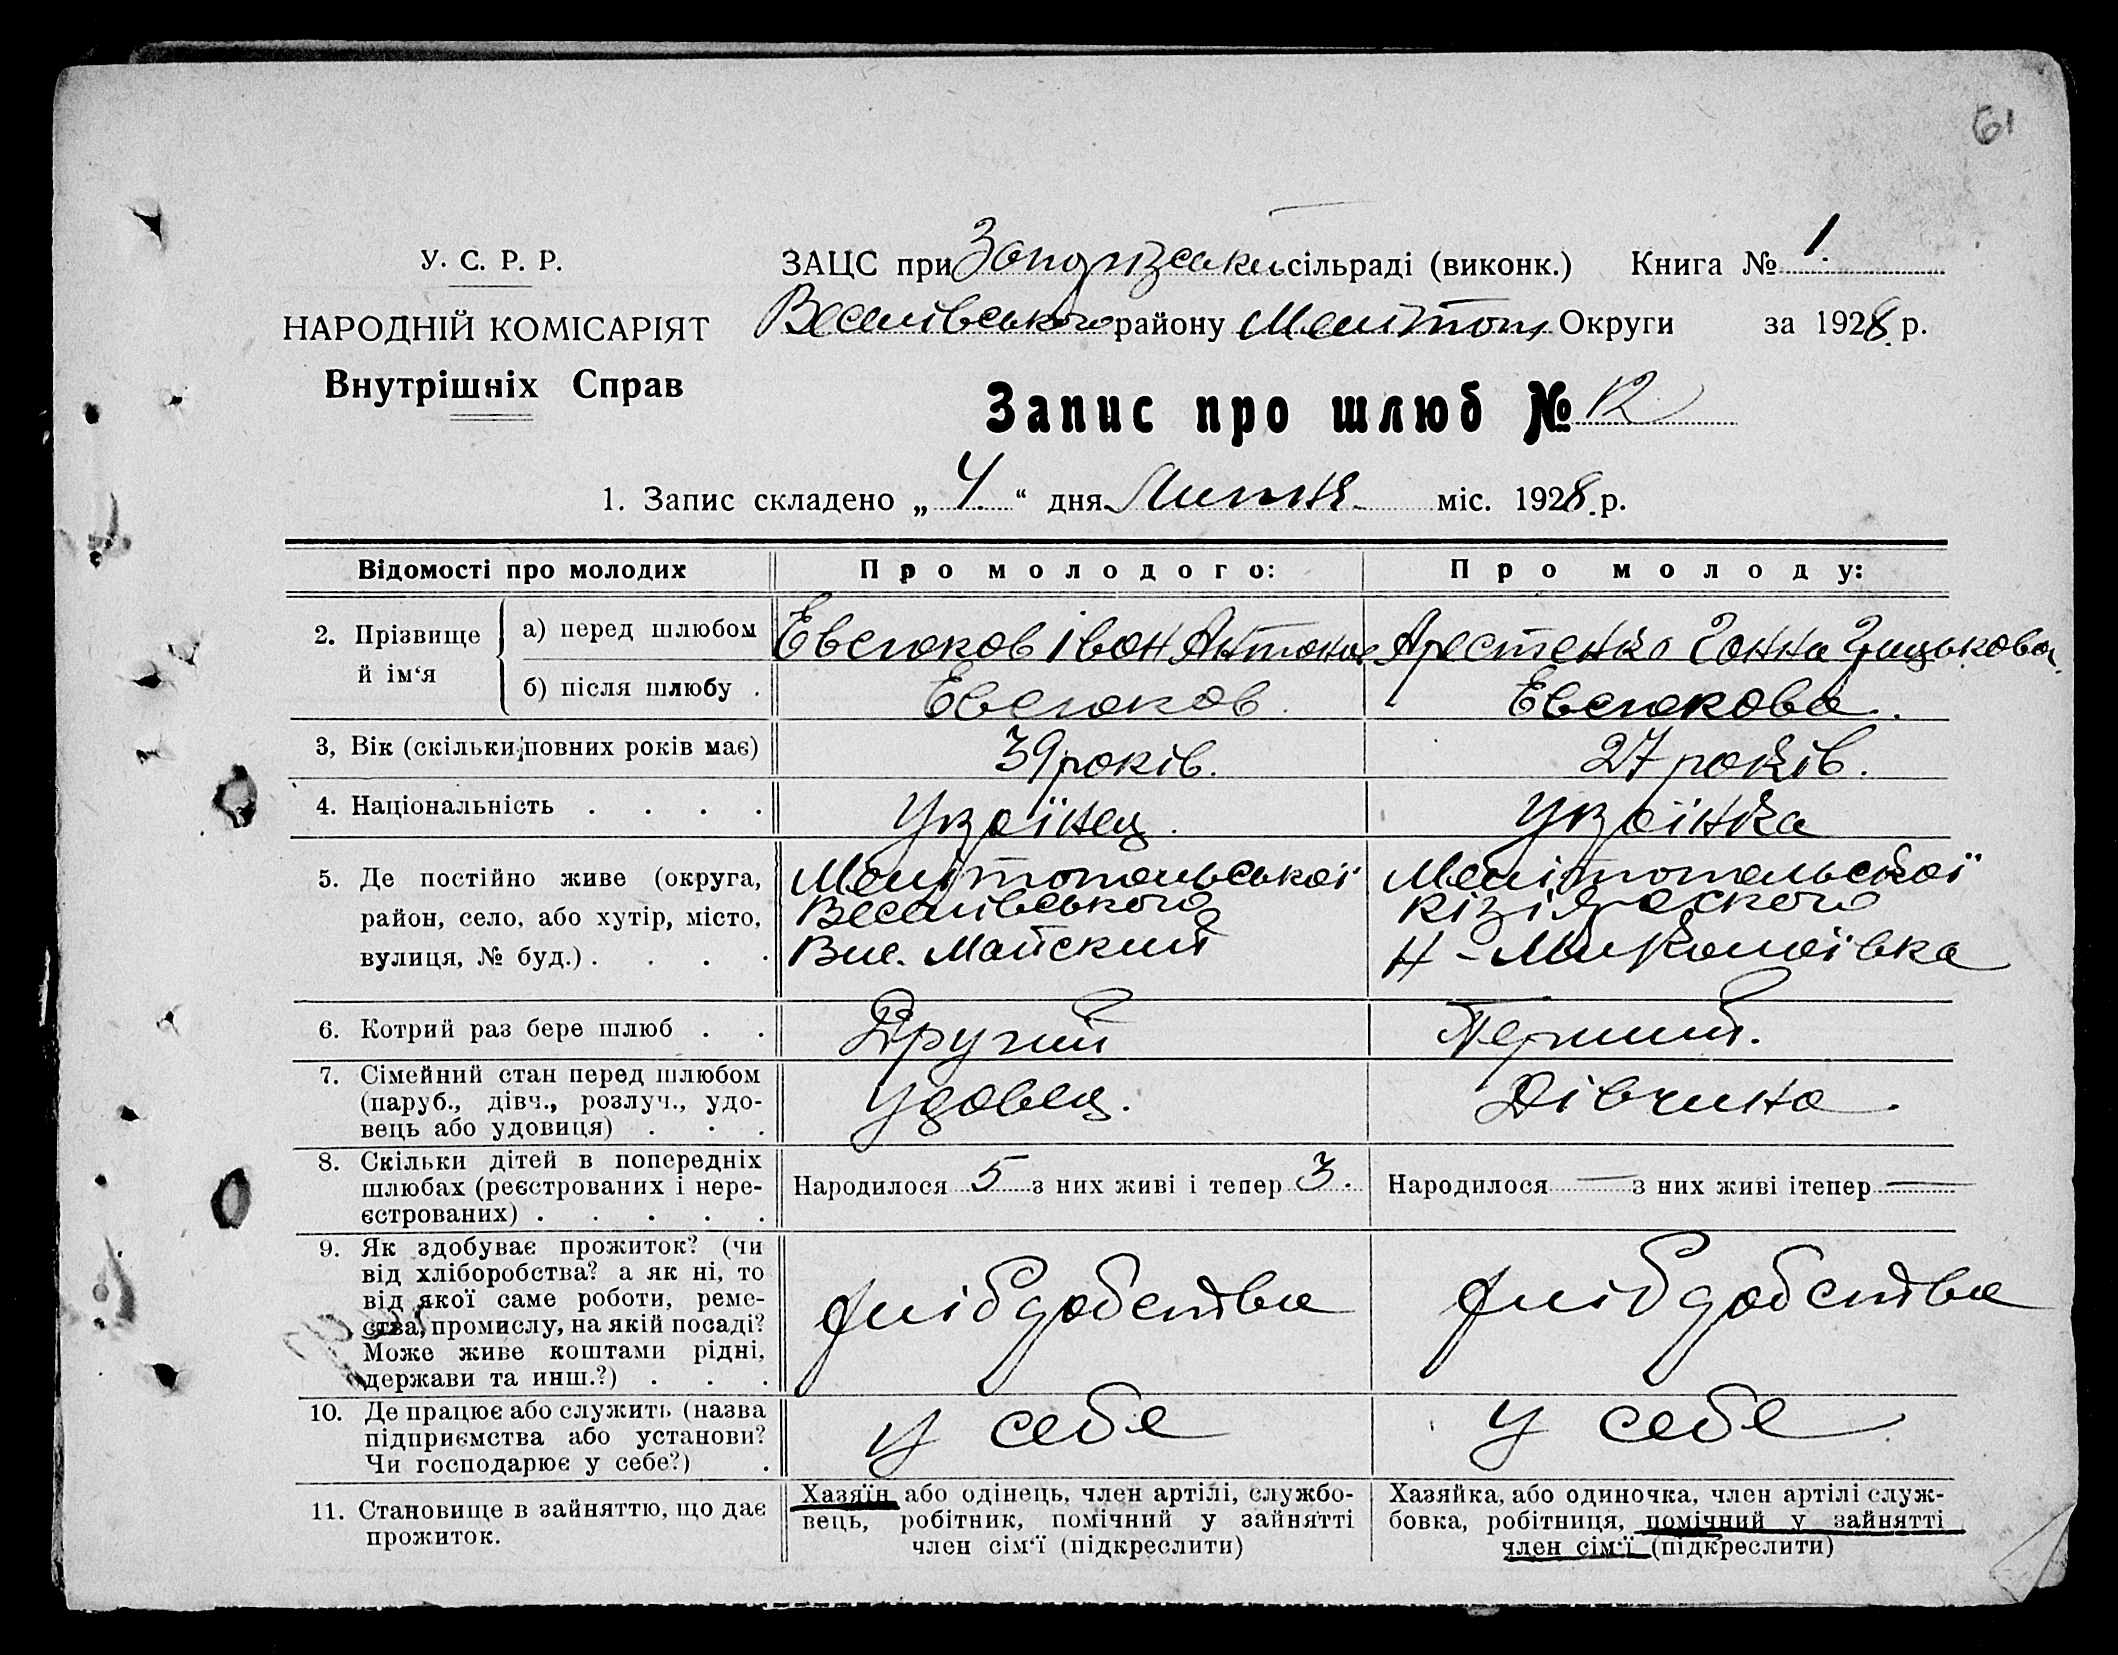 61
У. С. Р. Р.
НАРОДНІЙ КОМІСАРІЯТ
Внутрішніх Справ
ЗАЦС при сільраді (виконк.) Книга № 1.
Веселівського району Мелітоп. Округи за 1928 р.
Запис про шлюб № 12
1. Запис складено „ 4 “ дня Липня міс. 1928 р.
Відомості про молодих
Про молодого:
Про молоду:
2. Прізвище й ім‘я
а) перед шлюбом
Евсюков Іван Антонов
Арестенко Ганна Грицькова
б) після шлюбу .
Евсюков.
Евсюкова.
3, Вік (скільки повних років має)
39 років.
27 років.
4. Національність . . . .
Украінец.
Украінка
5. Де постійно живе (округа,
район, село, або хутір, місто,
вулиця, № буд.) . . . .
Мелітопольськоі
Веселівського
Вис. Майский
Мелітопольськоі
Н-Миколаівка
6. Котрий раз бере шлюб . .
Другий
Перший.
7. Сімейний стан перед шлюбом
(паруб., дівч., розлуч., удо-
вець або удовиця) . . .
Удовец.
Дівчина.
8. Скільки дітей в попередніх
шлюбах (реєстрованих і нере-
єстрованих) . . . . .
Народилося 5 з них живі і тепер 3.
Народилося — з них живі ітепер —
9. Як здобуває прожиток? (чи
від хліборобства? а як ні, то
від якої саме роботи, реме-
ства, промислу, на якій посаді?
Може живе коштами рідні,
держави та инш.?) . . .
10. Де працює або служить (назва
підприємства або установи?
Чи господарює у себе?) .
у себе
у себе
11. Становище в зайняттю, що дає
прожиток.
Хазяїн або одінець, член артілі, службо-
вець, робітник, помічний у зайнятті
член сім‘ї (підкреслити)
Хазяйка, або одиночка, член артілі служ-
бовка, робітниця, помічний у зайнятті
член сім‘ї (підкреслити)